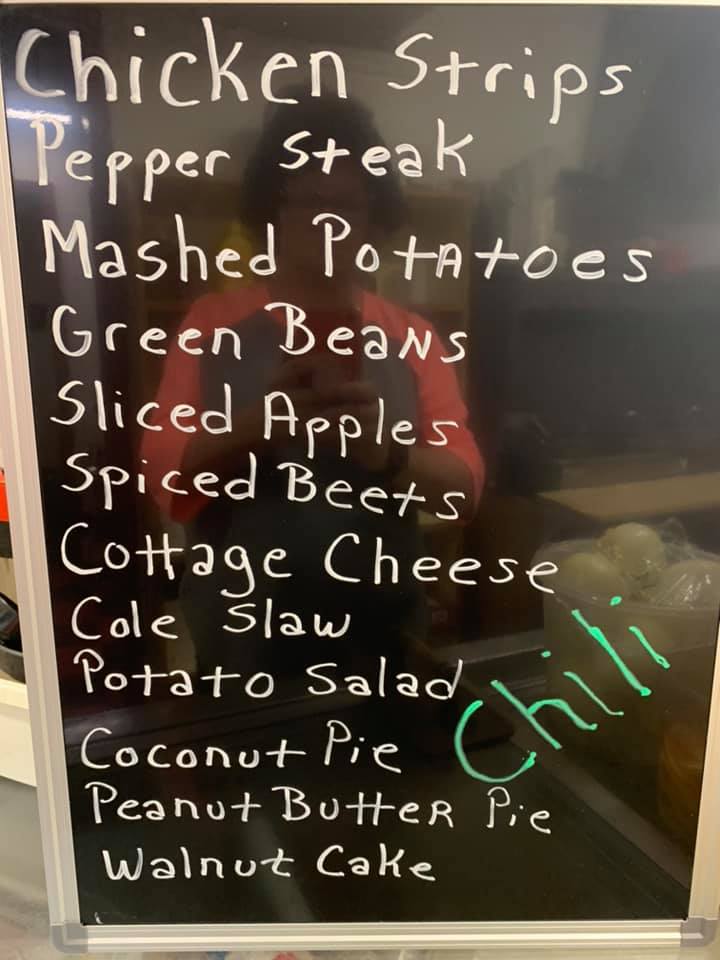 Chicken Strips
Pepper Steak
Mashed Potatoes
Green Beans
Sliced Apples
Spiced Beets
Cottage Cheese
Cole Slaw
Potato Salad
Chili
Coconut Pie
Peanut Butter Pie
Walnut Cake